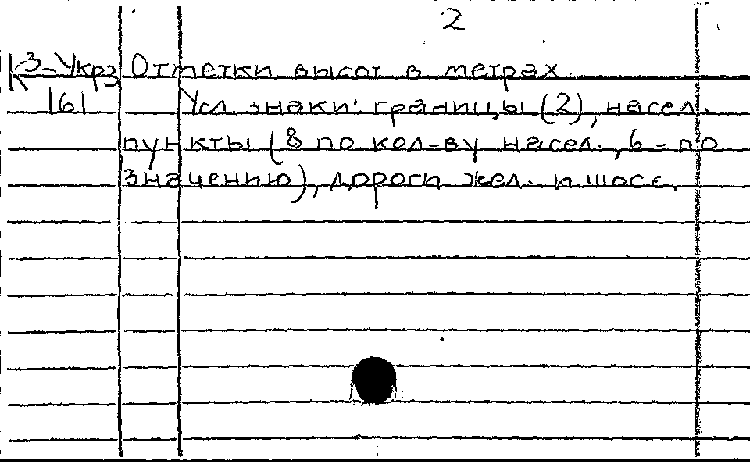 2
К3-Укр3 Отметки высот в метрах.
161 Усл. знаки: границы (2), насел.
пункты (8 по кол-ву насел., 6 - по
значению), дороги жел. и шосс.